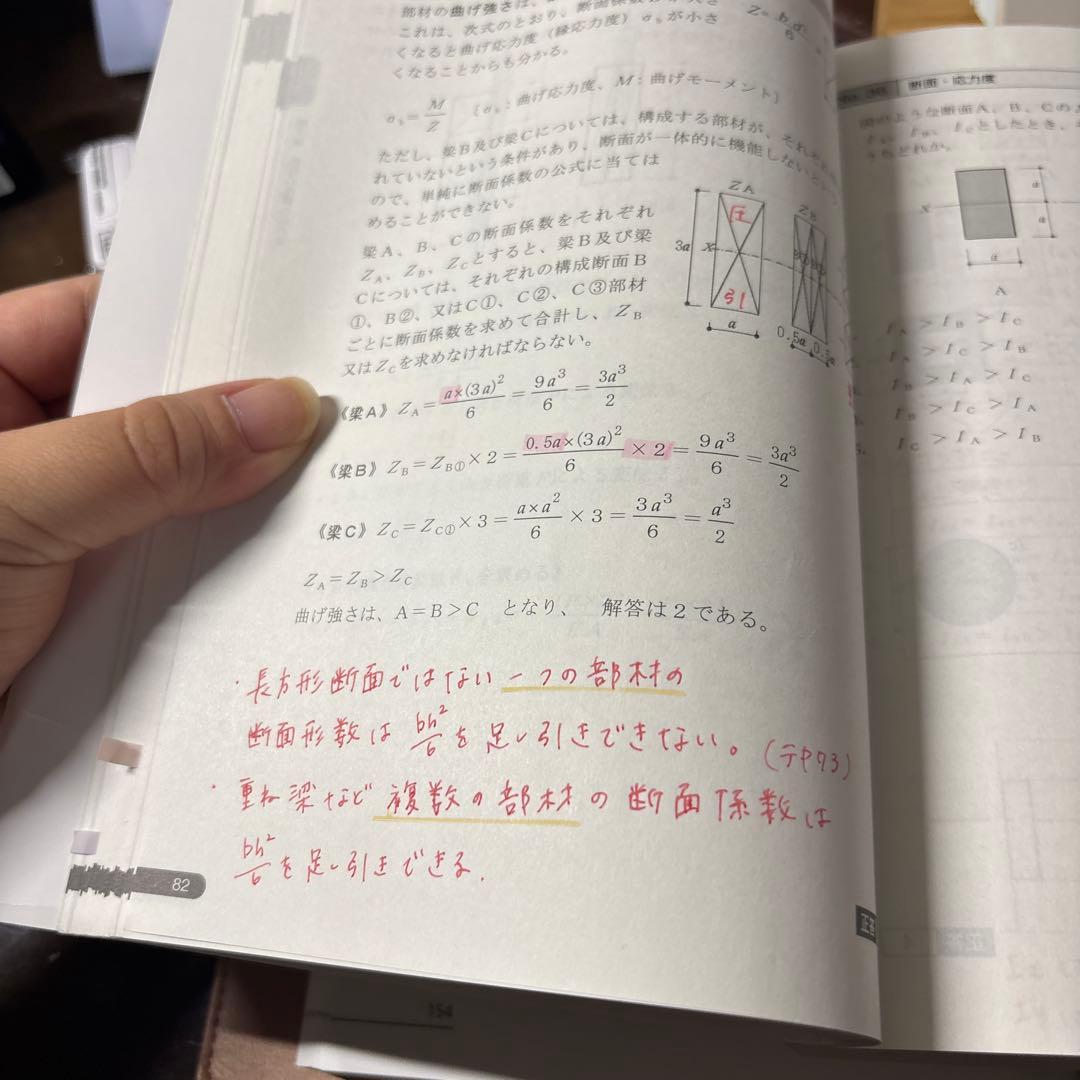 部材の曲げ強さは、
これは、次式のとおり、断面係数
くなると曲げ応力度（縁応力度）σb が小さ
くなることからも分かる。
σb=M/Z （σb：曲げ応力度、M：曲げモーメント）
ただし、梁B及び梁Cについては、構成する部材が、それぞれ
れていないという条件があり、断面が一体的に機能しない
ので、単純に断面係数の公式に当ては
めることができない。
梁A、B、Cの断面係数をそれぞれ
ZA、ZB、ZCとすると、梁B及び梁
Cについては、それぞれの構成断面B
①、B②、又はC①、C②、C③部材
ごとに断面係数を求めて合計し、ZB
又はZCを求めなければならない。
ZA
圧
3a
X
引
a
ZB
0.5a
《梁A》 ZA=a×(3a)²/6=9a³/6=3a³/2
《梁B》 ZB=ZB①×2=0.5a×(3a)²/6×2=9a³/6=3a³/2
《梁C》 ZC=ZC①×3=a×a²/6×3=3a³/6=a³/2
ZA=ZB>ZC
曲げ強さは、A=B>C となり、 解答は2である。
・長方形断面ではない一つの部材の
断面形数は bh²/6 を足し引きできない。(テP93)
・重ね梁など複数の部材の断面係数は
bh²/6 を足し引きできる.
82
正答
断面・応力度
のような断面A、B、Cの
X
a
a
a
A
IA>IB>IC
IA>IC>IB
IB>IA>IC
IB>IC>IA
IC>IA>IB
154